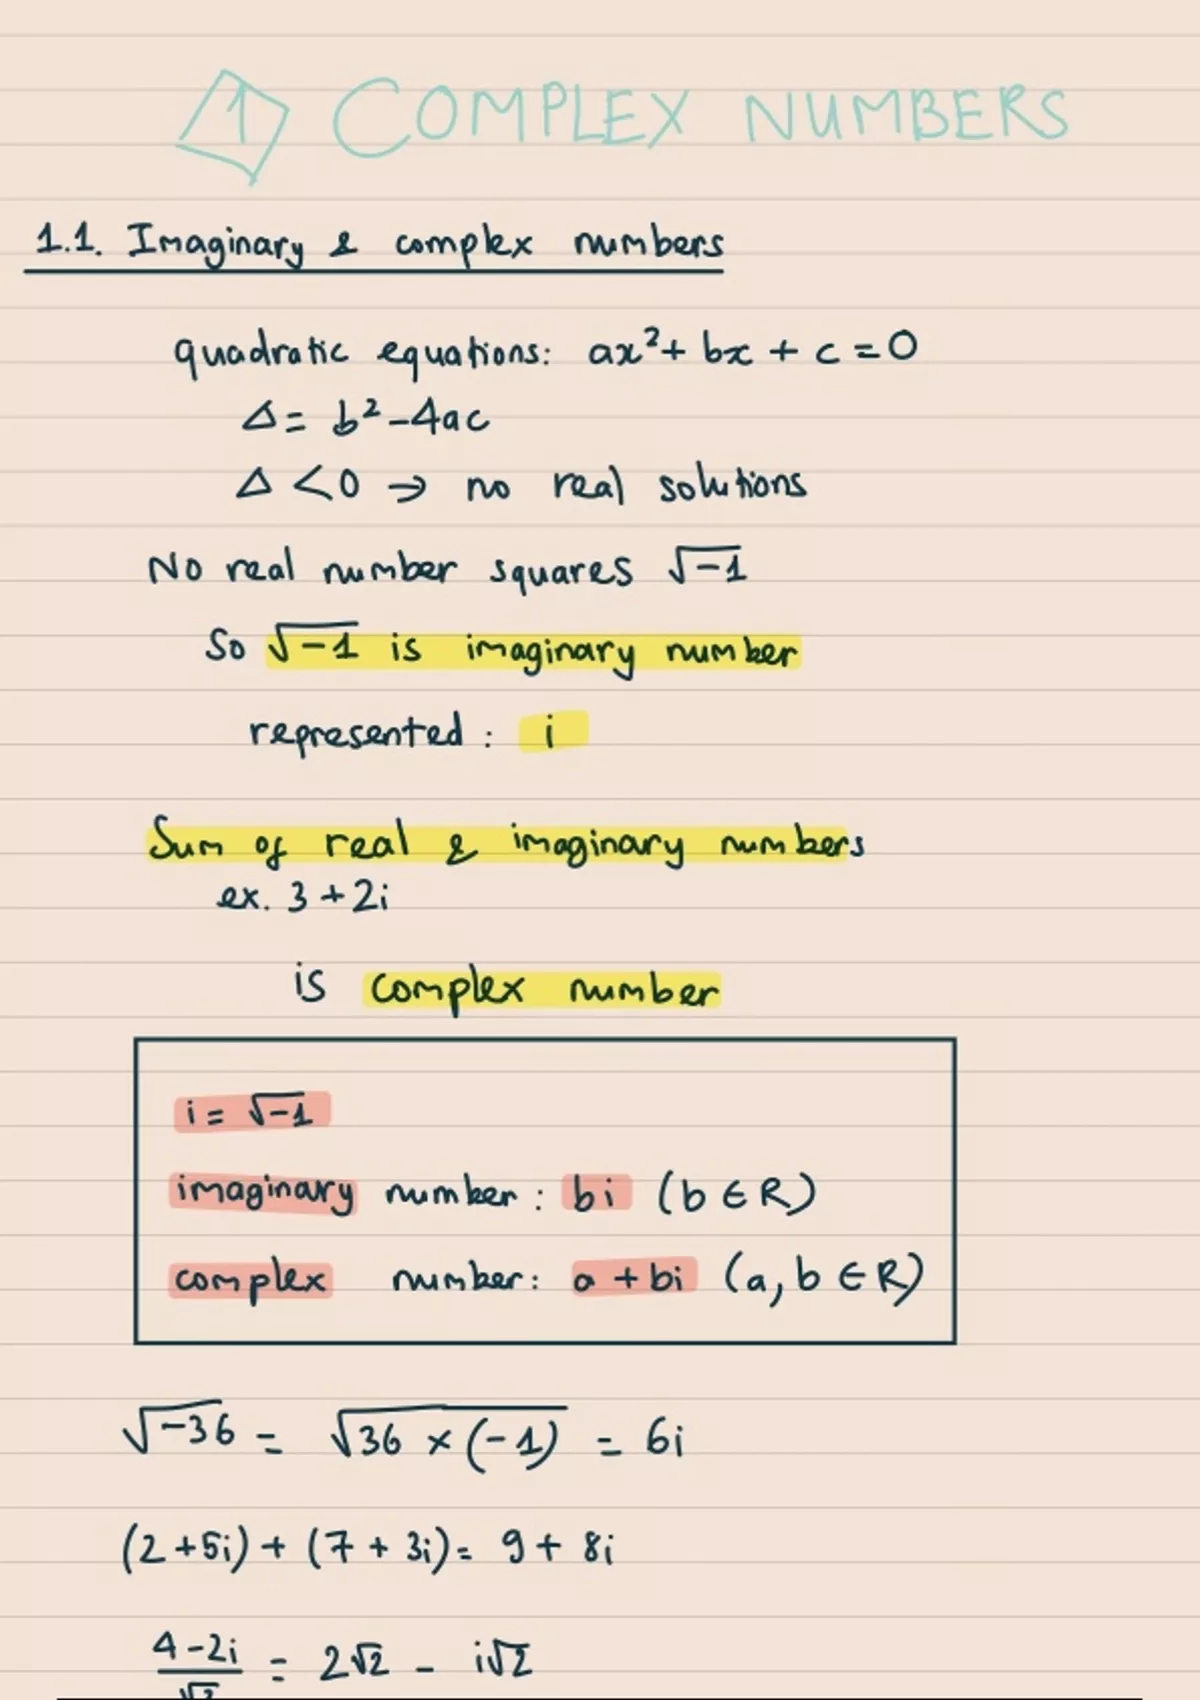 1 COMPLEX NUMBERS
1.1. Imaginary & complex numbers
quadratic equations: ax²+ bx + c = 0
Δ = b² -4ac
Δ < 0 → no real solutions
No real number squares √-1
So √-1 is imaginary number
represented : i
Sum of real & imaginary numbers
ex. 3 + 2i
is complex number
i = √-1
imaginary number : bi (b ∈ R)
complex number: a + bi (a, b ∈ R)
√-36 = √36 × (-1) = 6i
(2 +5i) + (7 + 3i) = 9 + 8i
4 -2i / √2 = 2√2 - i√2